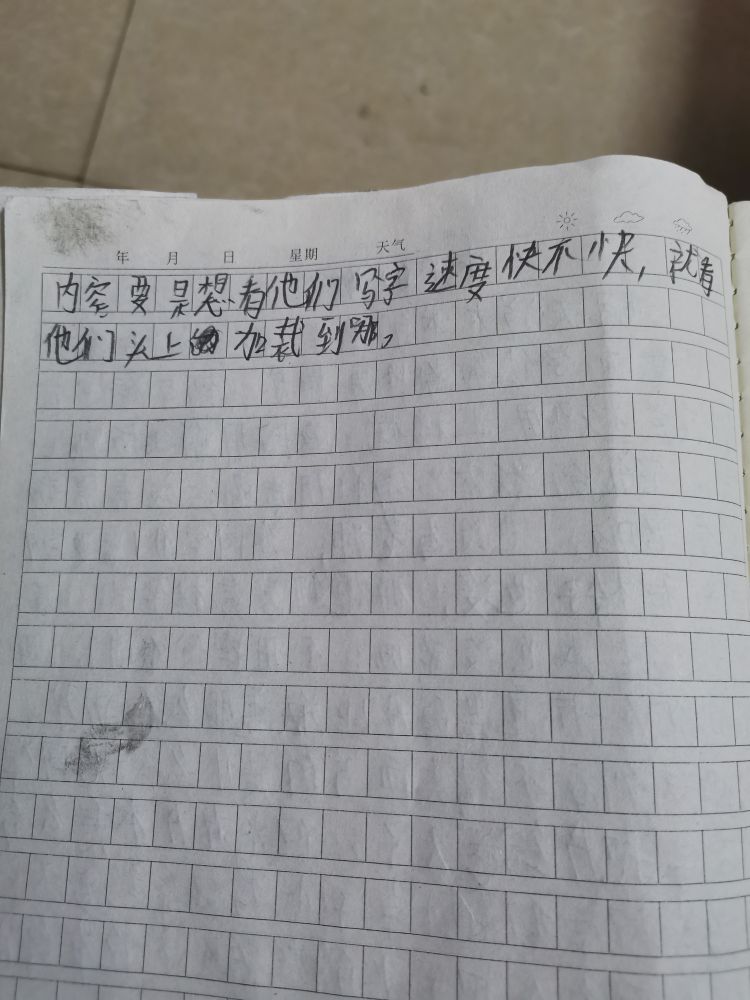 年 月 日 星期 天气
内容要是想看他们写字速度快不快，就看
他们头上加裁到哪。